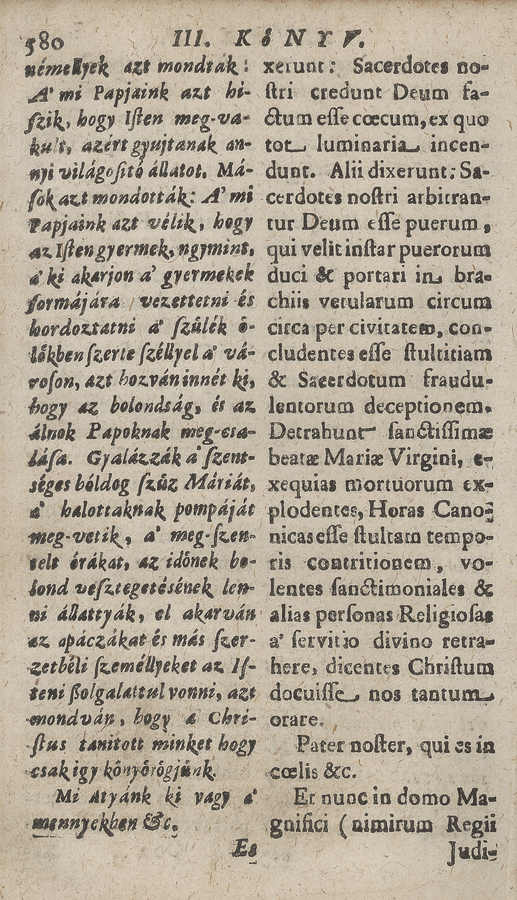 580 III. KöNYV.
némellyek azt mondták:
A' mi Papjaink azt hi-
ſzik, hogy Iſten meg-va-
kult, azért gyujtanak an-
nyi világoſitó állatot. Má-
ſok azt mondották: A' mi
Papjaink azt vélik, hogy
az Iſten gyermek, ugymint,
a' ki akarjon a' gyermekek
formájára vezettetni és
hordoztatni a' ſzülék ö-
lökben ſzerte ſzéllyel a' vá-
roſon, azt hozván innét ki,
hogy az bolondság, és az
álnok Papoknak meg-csa-
láſa. Gyalázzák a' ſzent-
séges bóldog ſzüz Máriát,
a' halottaknak pompáját
meg-vetik, a' meg-ſzen-
telt órákat, az idönek bo-
lond veſztegetésének len-
ni állattyák, el akarván
az apáczákat és más ſzer-
zetbéli ſzeméllyeket az Iſ-
teni ßolgalattul vonni, azt
mondván, hogy a Chri-
ſtus tanitott minket hogy
csak igy könyörögjünk.
Mi Atyánk ki vagy a'
mennyekben &c.
Es
xerunt: Sacerdotes no-
ſtri credunt Deum fa-
ctum eſſe cœcum, ex quo
tot luminaria incen-
dunt. Alii dixerunt: Sa-
cerdotes noſtri arbitran-
tur Deum eſſe puerum,
qui velit inſtar puerorum
duci & portari in bra-
chiis vetularum circum
circa per civitatem, con-
cludentes eſſe ſtultitiam
& Sacerdotum fraudu-
lentorum deceptionem.
Detrahunt ſanctiſſimæ
beatæ Mariæ Virgini, e-
xequias mortuorum ex-
plodentes, Horas Cano-
nicas eſſe ſtultam tempo-
ris contritionem, vo-
lentes ſanctimoniales &
alias perſonas Religioſas
a' ſervitio divino retra-
here, dicentes Chriſtum
docuiſſe nos tantum
orare.
Pater noſter, qui es in
cœlis &c.
Et nunc in domo Ma-
gnifici (nimirum Regii
Judi-